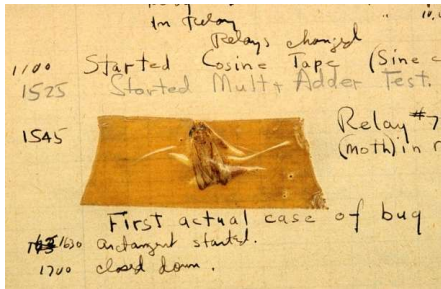 in relay
Relays changed
1100 Started Cosine Tape (Sine c
1525 Started Mult + Adder Test.
1545 Relay #7
(moth) in r
First actual case of bug
1630 arctangent started.
1700 closed down.